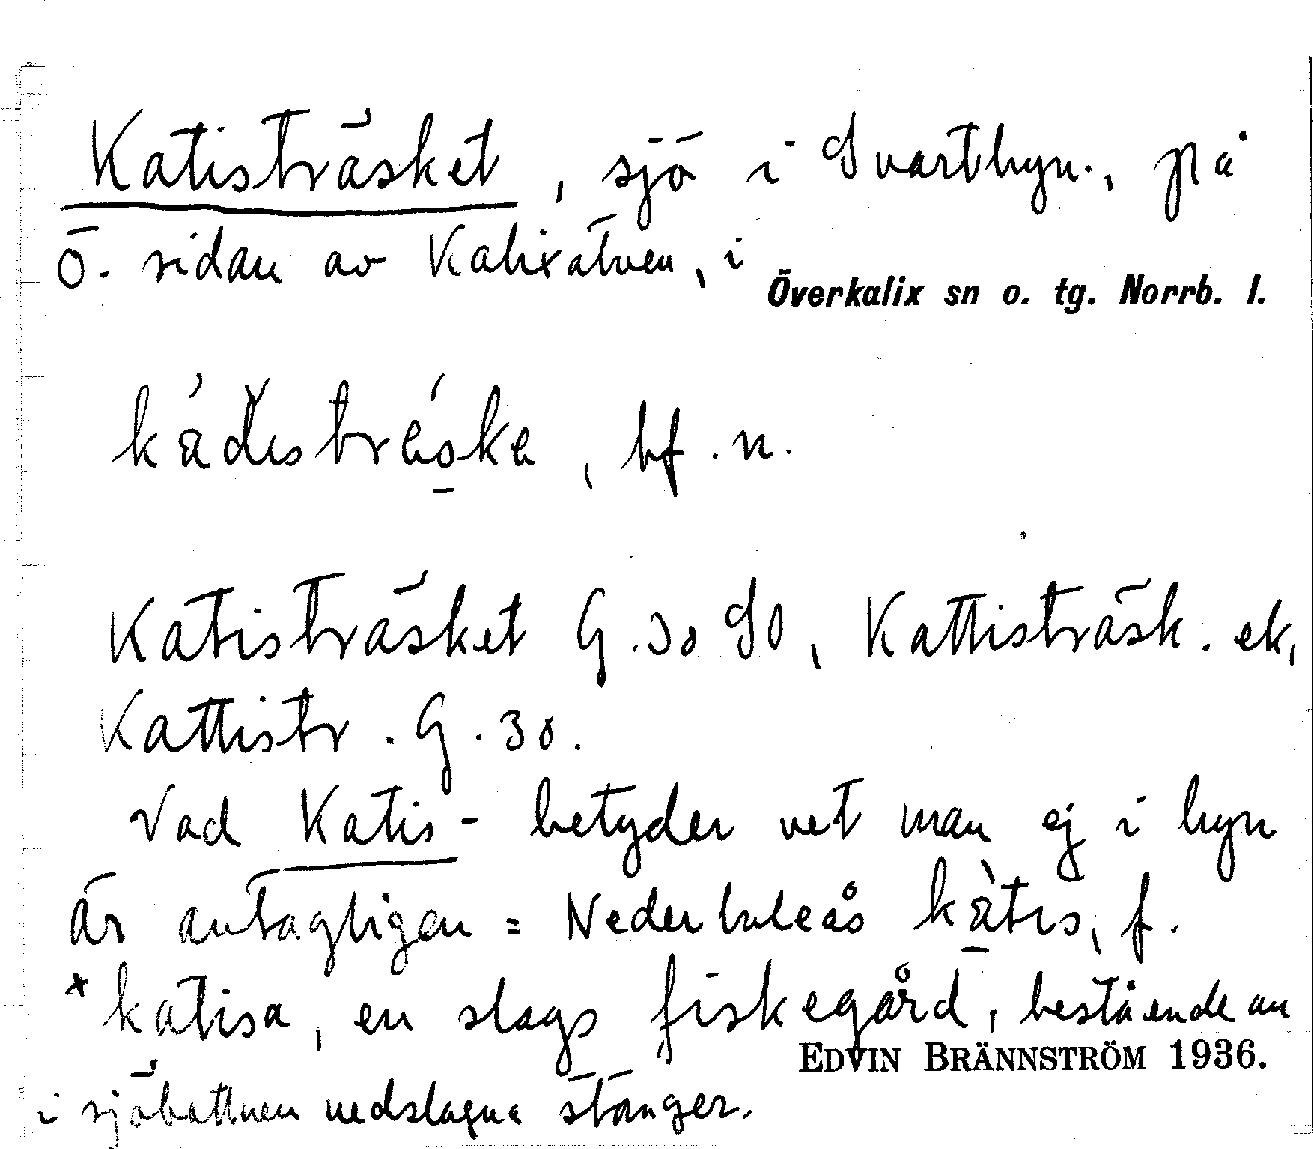 Katisträsket, sjö i Svartbyn., på
ö. sidan av Kalixälven, i Överkalix sn o. tg. Norrb. l.
kádisträ́ske, bf. n.
Katisträsket G. 30 SO, Kattisträsk. ek,
Kattistr. G. 30.
Vad Katis- betyder vet man ej i byn
är antagligen = Nederluleås kàtis, f.
*katisa, en slags fiskegård, bestående av
EDVIN BRÄNNSTRÖM 1936.
i sjöbottnen nedslagna stänger.